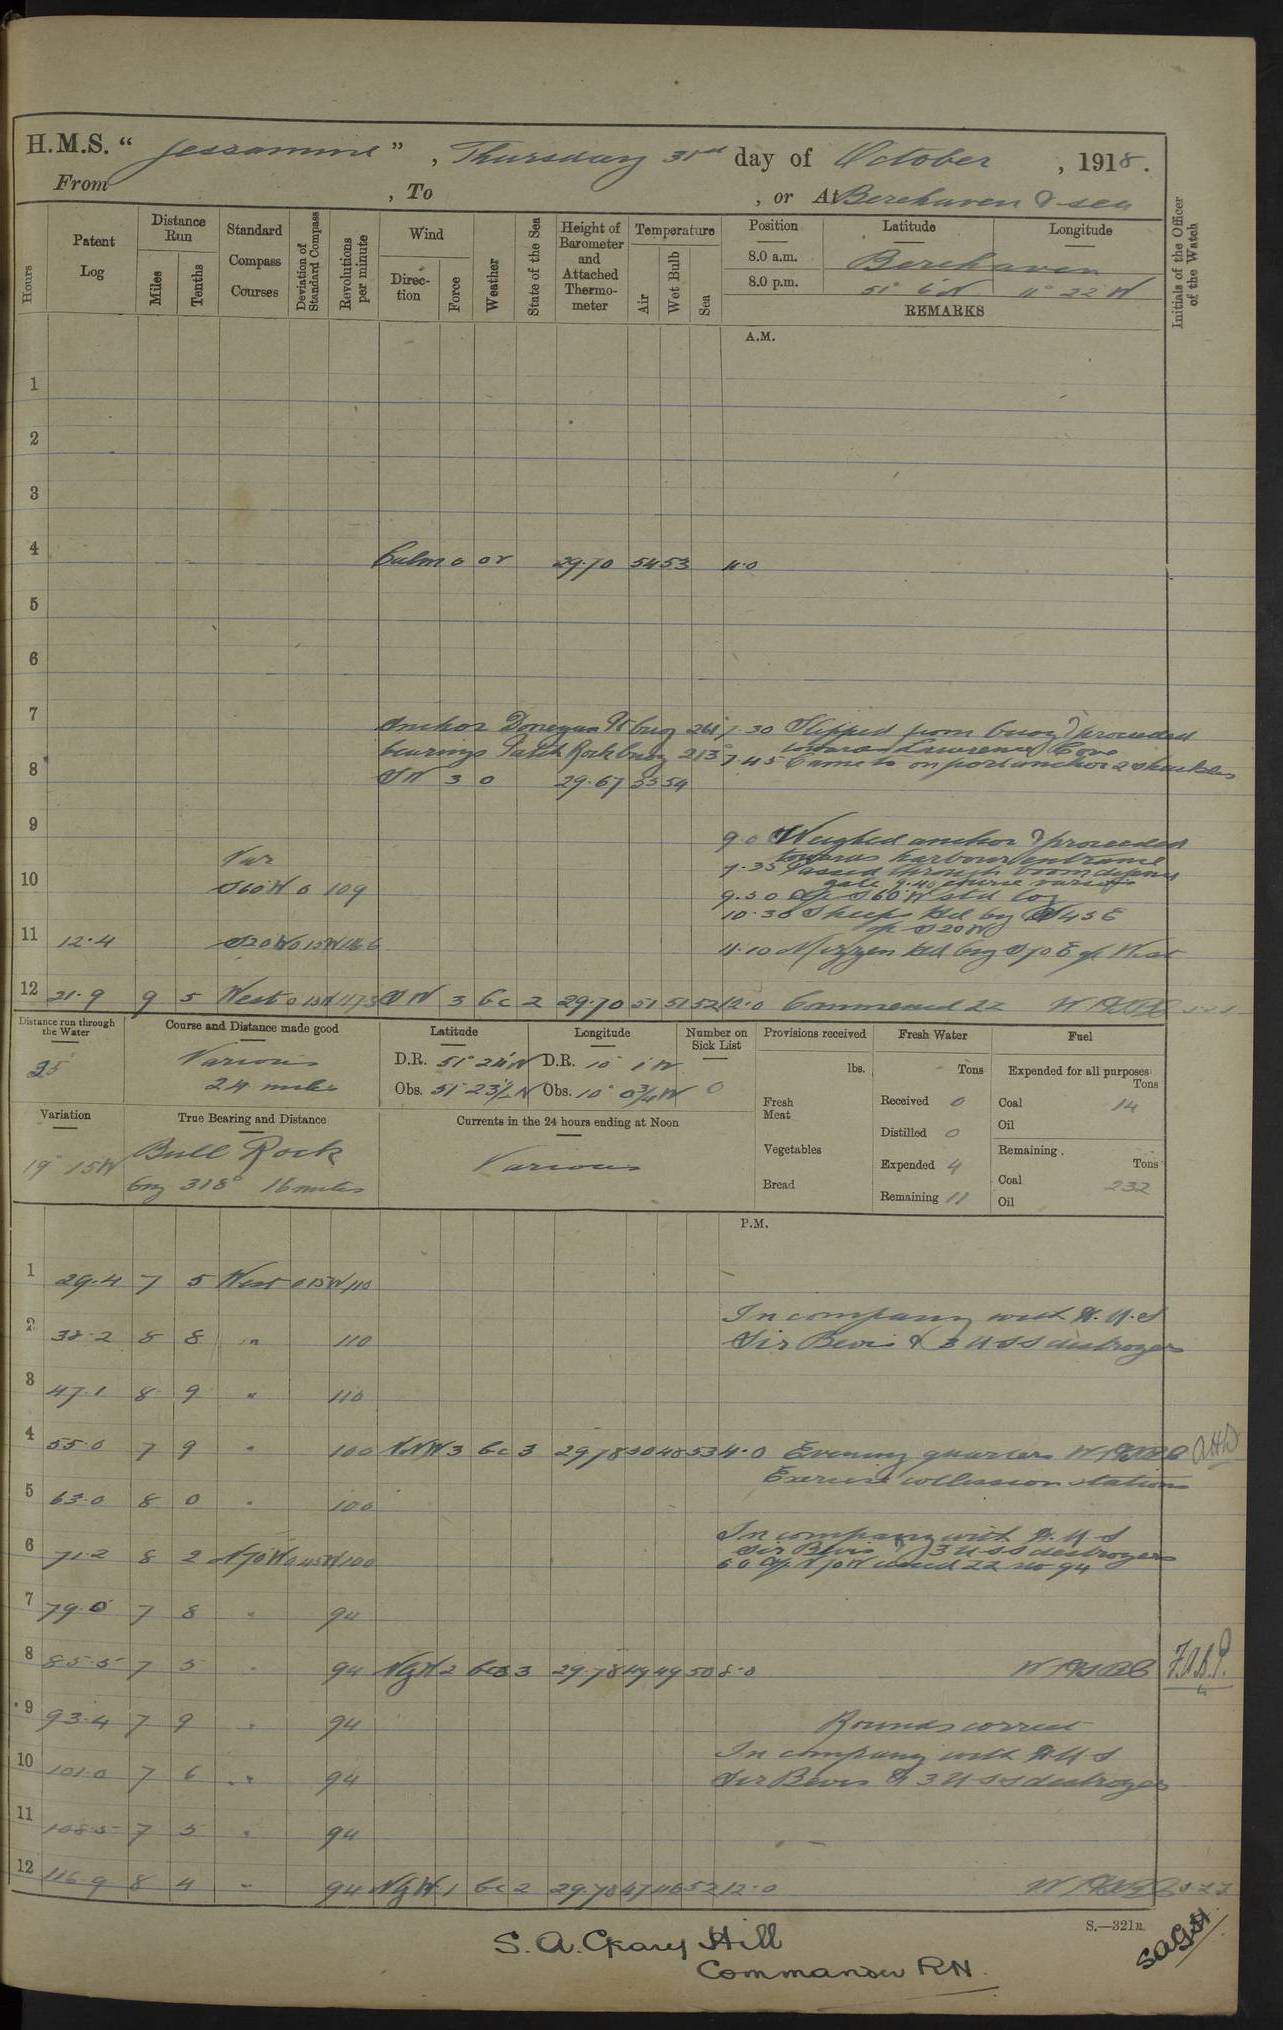 H.M.S. “ Jessamine ” , Thursday 31st day of October , 1918.
From , To , or At Berehaven & sea
Hours
Patent Log
Distance Run
Miles
Tenths
Standard Compass Courses
Deviation of Standard Compass
Revolutions per minute
Wind
Direction
Force
Weather
State of the Sea
Height of Barometer and Attached Thermometer
Temperature
Air
Wet Bulb
Sea
Position
Latitude
Longitude
8.0 a.m. Berehaven
8.0 p.m. 51° 6' N 11° 22 W
REMARKS
Initials of the Officer of the Watch
A.M.
1
2
3
4 Calm 0 or 29.70 54 53 4.0
5
6
7
Anchor Donegan Pt buoy 261° 7.30 Slipped from buoy & proceeded
towards Lawrence Cove
bearings Rock buoy 213° 7.45 Came to on port anchor 2 shackles
8 SW 3 0 29.67 55 54
9
9.0 Weighed anchor & proceeded
towards harbour entrance
Var
9.35 Passed through boom defence
gate 9.40 course various
10 S60W 0 109
9.50 S60°W std log
10.30 Sheeps Hd by S45E
S20W
11 12.4 S20W 0 15W 116.6
11.10 Mizzen Hd brg S70E West
12 21.9 9 5 West 0 15W 117.3 SW 3 bc 2 29.70 51 51 52 12.0 Commenced 22
Distance run through the Water
25
Course and Distance made good
Various
24 miles
Latitude
D.R. 51° 24' N
Obs. 51° 23½ N
Longitude
D.R. 10° 1' W
Obs. 10° 0¾ W
Number on Sick List
0
Provisions received
lbs.
Fresh Meat
Vegetables
Bread
Fresh Water
Tons
Received 0
Distilled 0
Expended 4
Remaining 11
Fuel
Expended for all purposes
Tons
Coal 14
Oil
Remaining
Tons
Coal 232
Oil
Variation
19° 15W
True Bearing and Distance
Bull Rock
brg 318° 16 miles
Currents in the 24 hours ending at Noon
Various
P.M.
1 29.4 7 5 West 0 15W 110
In company with H.M.S
2 38.2 8 8 " 110 Sir Bevis & 3 USS destroyers
3 47.1 8 9 " 110
4 55.0 7 9 " 100 NNW 3 bc 3 29.78 50 48 53 4.0 Evening quarters
Exercise collission stations
5 63.0 8 0 " 100
In company with H.M.S
Sir Bevis & 3 USS destroyers
6 71.2 8 2 N70W 0.45W 100 6.0 N70W 22 no 94
7 79.0 7 8 " 94
8 85.5 7 5 " 94 NbyW 2 bc 3 29.78 49 49 50 8.0 F.A.B.P.
9 93.4 7 9 " 94 Rounds correct
In company with H.M.S
10 101.0 7 6 " 94 Sir Bevis & 3 USS destroyers
11 108.5 7 5 " 94
12 116.9 8 4 " 94 NbyW 1 bc 2 29.78 47 46 52 12.0
S.—321B.
S.A. Geary Hill
Commander RN.
SAGH